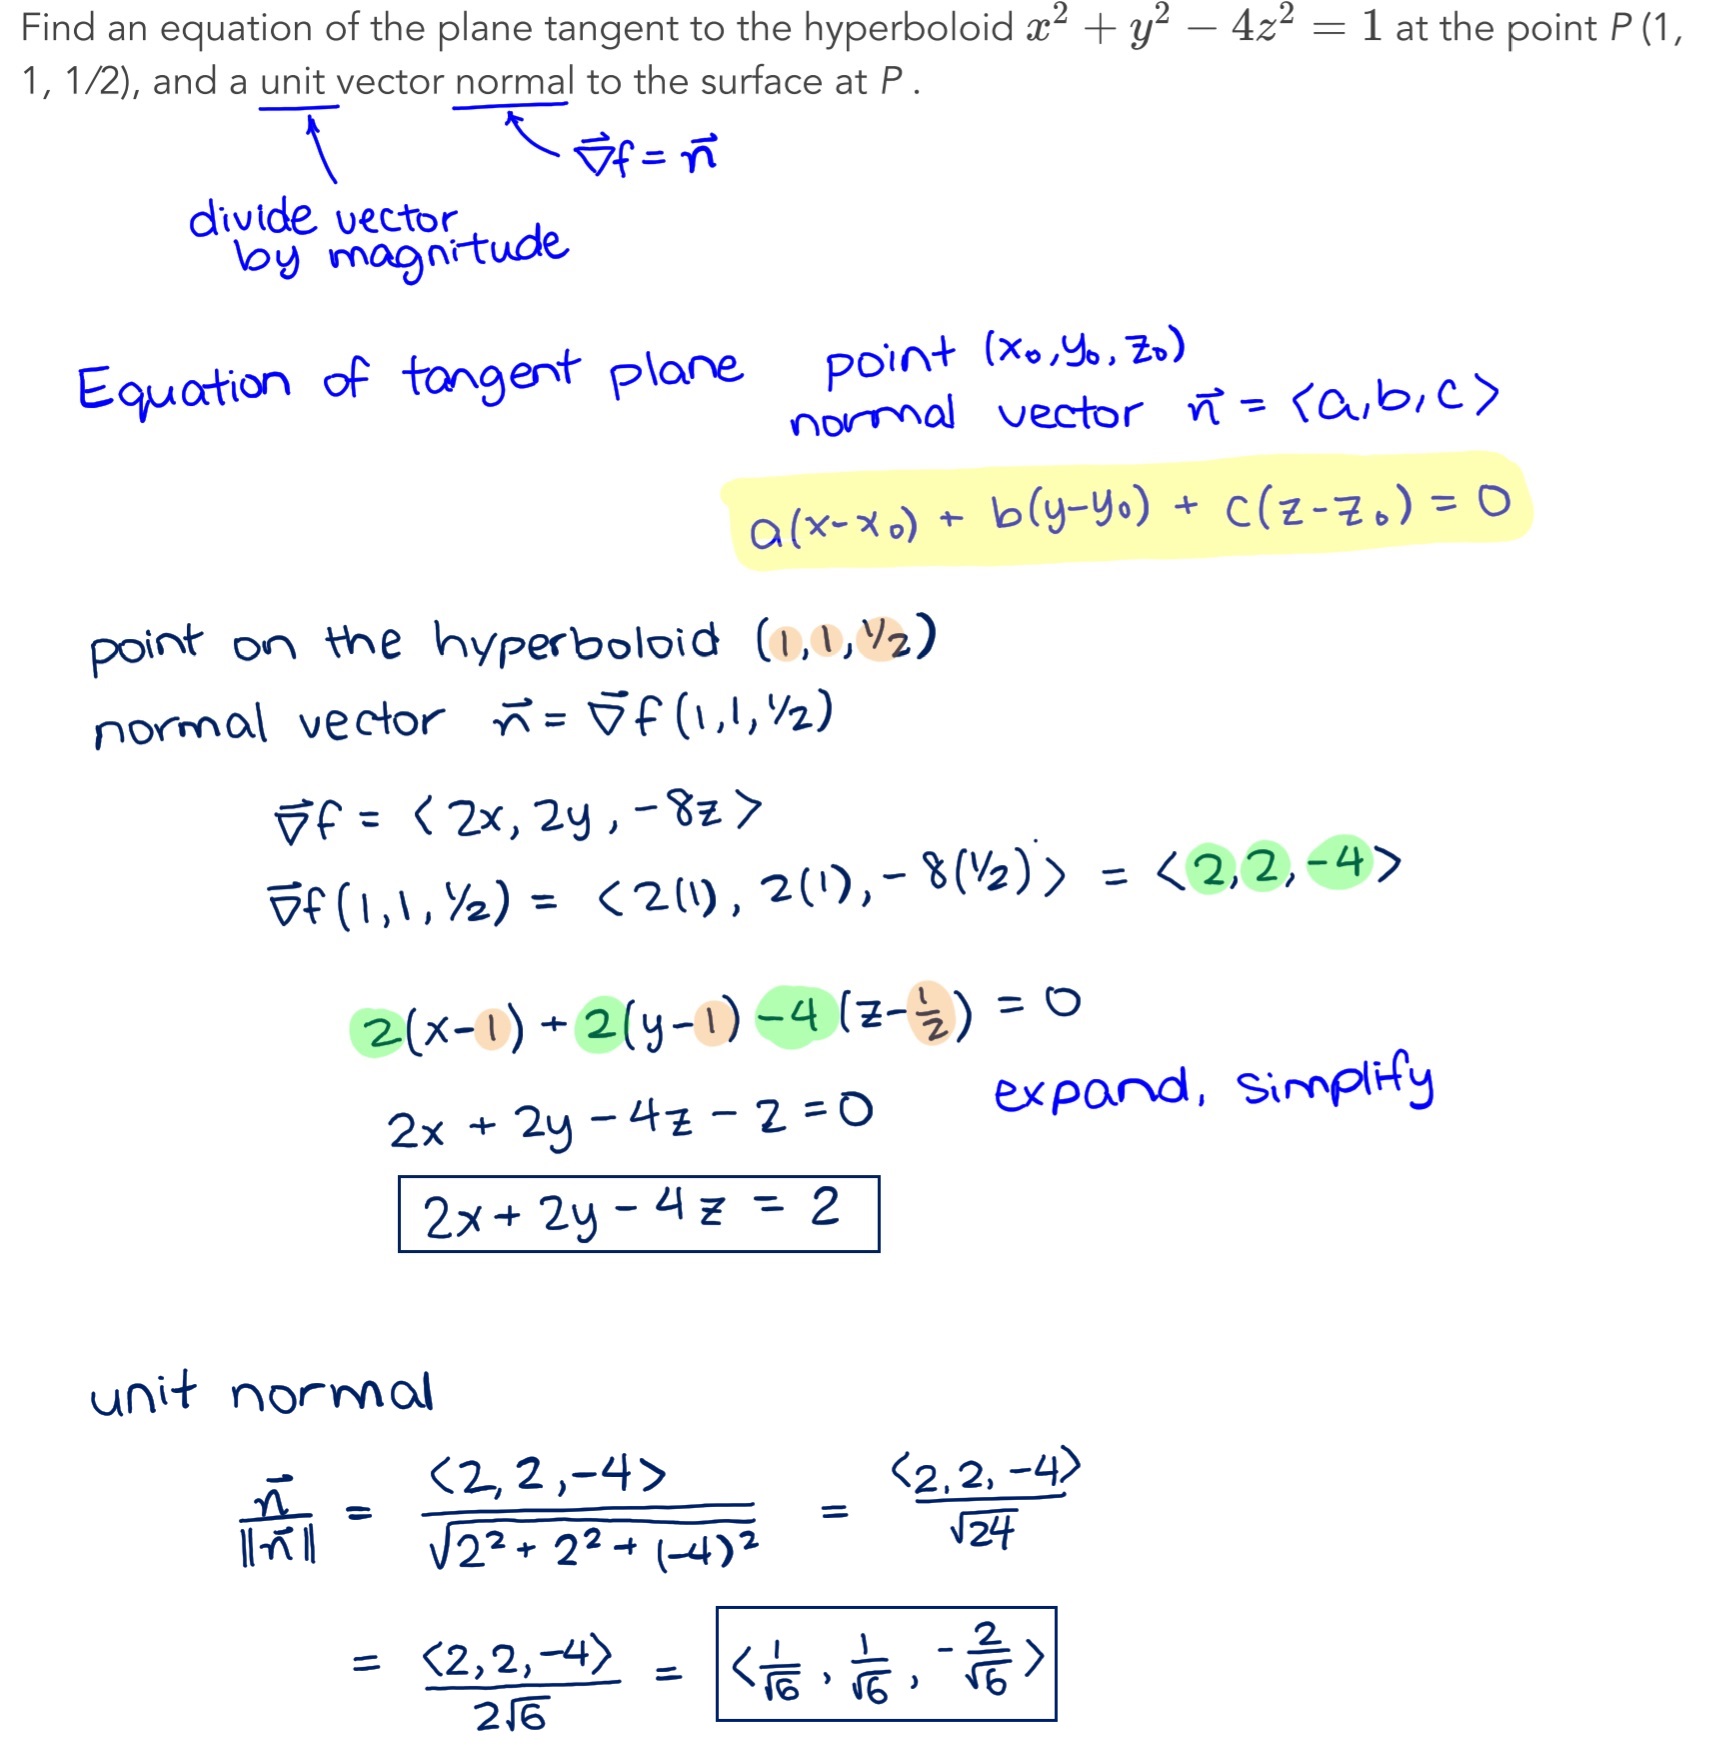 Find an equation of the plane tangent to the hyperboloid x² + y² − 4z² = 1 at the point P (1,
1, 1/2), and a unit vector normal to the surface at P .
∇⃗f = n⃗
divide vector
by magnitude
Equation of tangent plane
point (x₀, y₀, z₀)
normal vector n⃗ = <a, b, c>
a(x-x₀) + b(y-y₀) + c(z-z₀) = 0
point on the hyperboloid (1, 1, 1/2)
normal vector n⃗ = ∇⃗f(1, 1, 1/2)
∇⃗f = <2x, 2y, -8z>
∇⃗f(1, 1, 1/2) = <2(1), 2(1), -8(1/2)> = <2, 2, -4>
2(x-1) + 2(y-1) -4(z-1/2) = 0
expand, simplify
2x + 2y - 4z - 2 = 0
2x + 2y - 4z = 2
unit normal
n⃗/‖n⃗‖ = <2, 2, -4>/√2² + 2² + (-4)² = <2, 2, -4>/√24
= <2, 2, -4>/2√6 = <1/√6, 1/√6, -2/√6>